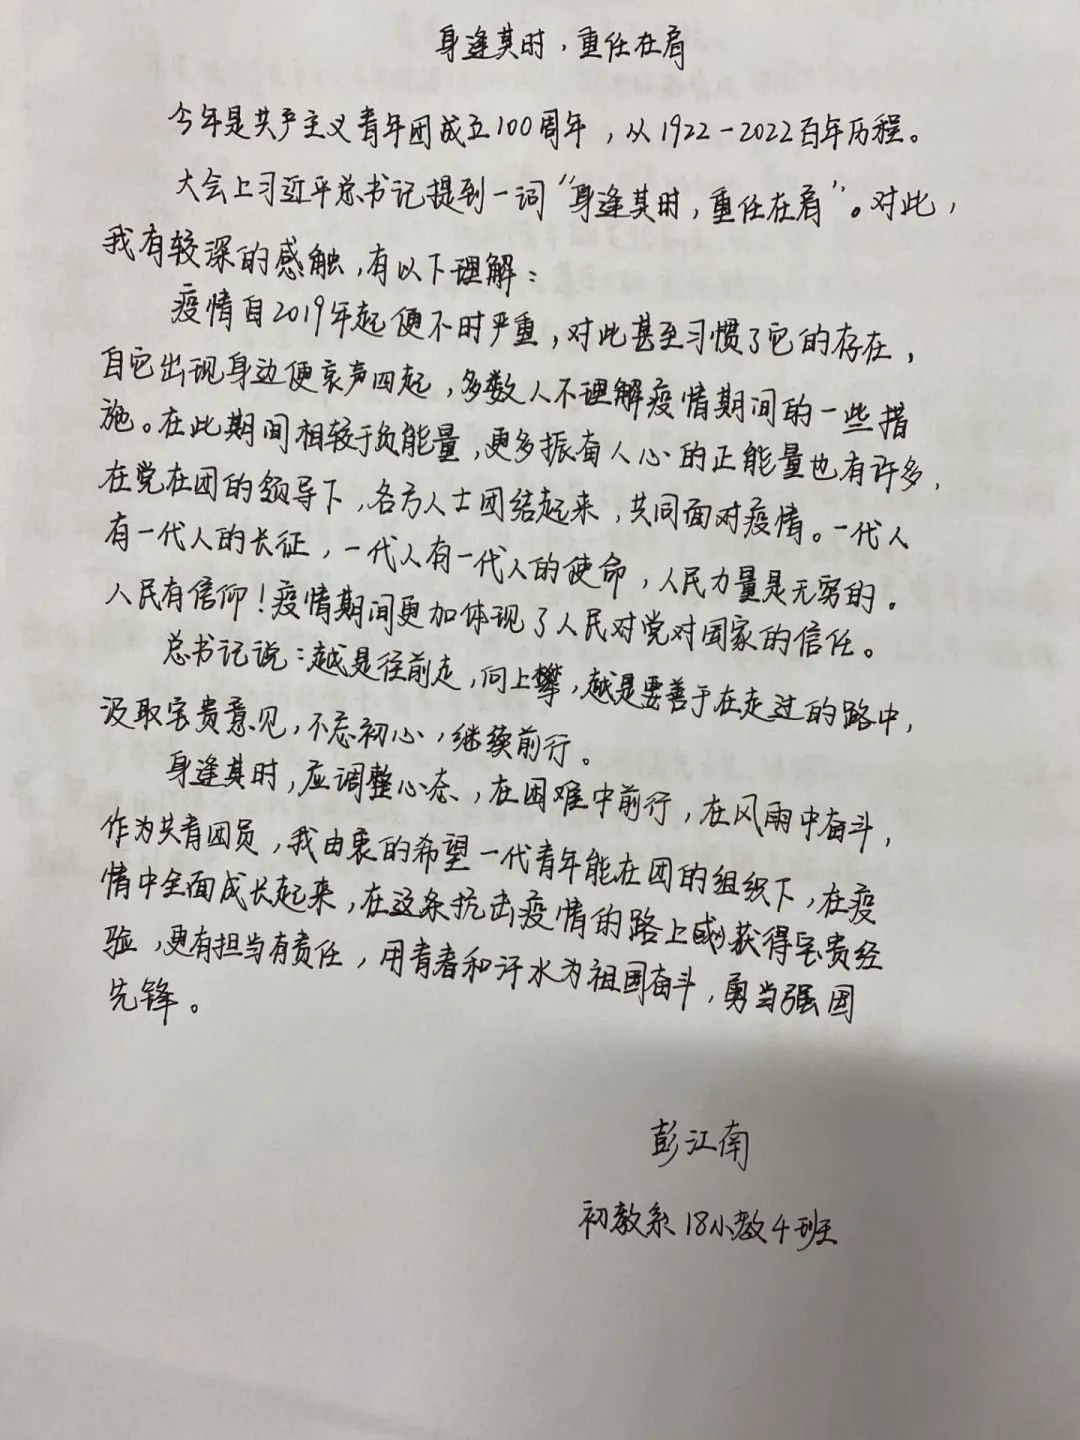 身逢其时，重任在肩
今年是共产主义青年团成立100周年，从1922-2022百年历程。
大会上习近平总书记提到一词“身逢其时，重任在肩”。对此，
我有较深的感触，有以下理解：
疫情自2019年起便不时严重，对此甚至习惯了它的存在，
自它出现身边便哀声四起，多数人不理解疫情期间的一些措
施。在此期间相较于负能量，更多振奋人心的正能量也有许多，
在党在团的领导下，各方人士团结起来，共同面对疫情。一代人
有一代人的长征，一代人有一代人的使命，人民力量是无穷的。
人民有信仰！疫情期间更加体现了人民对党对国家的信任。
总书记说：越是往前走，向上攀，越是要善于在走过的路中，
汲取宝贵意见，不忘初心，继续前行。
身逢其时，应调整心态，在困难中前行，在风雨中奋斗，
作为共青团员，我由衷的希望一代青年能在团的组织下，在疫
情中全面成长起来，在这条抗击疫情的路上获得宝贵经
验，更有担当有责任，用青春和汗水为祖国奋斗，勇当强国
先锋。
彭江南
初教系18小教4班